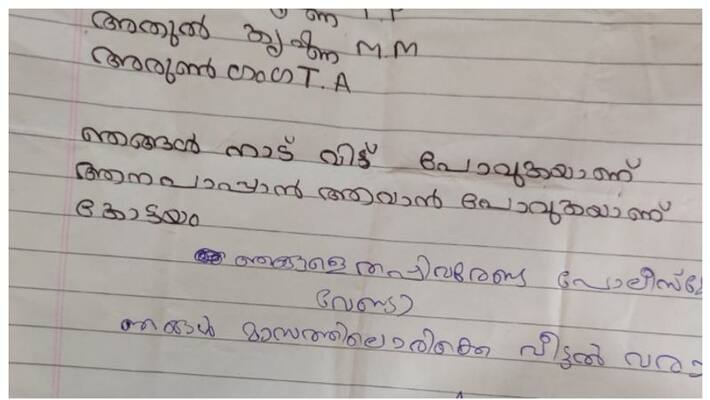 അതുൽ കൃഷ്ണ M.M
അരുൺ T.A
ഞങ്ങൾ നാട് വിട്ട് പോവുകയാണ്
ആനപാപ്പാൻ ആവാൻ പോവുകയാണ്
കോട്ടയം
ഞങ്ങളെ തപ്പിവരേണ്ട പോലീസ്
വേണ്ടാ
ഞങ്ങൾ മാസത്തിലൊരിക്കെ വീട്ടിൽ വരാ